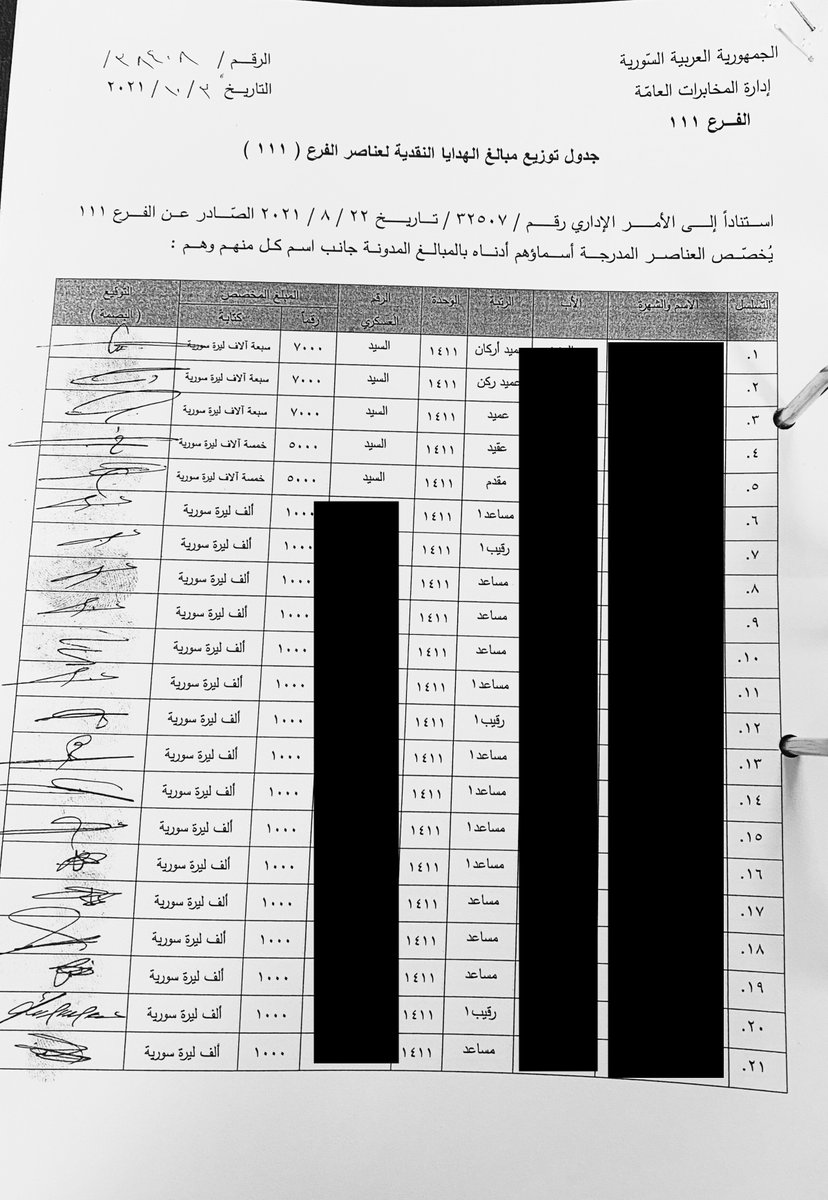 الجمهورية العربية السّورية
إدارة المخابرات العامّة
الفــرع ١١١
الرقــم / ٣٨٤٠٨ /
التاريـخ ٣ / ١٠ / ٢٠٢١
جدول توزيع مبالغ الهدايا النقدية لعناصر الفرع ( ١١١ )
استناداً إلى الأمر الإداري رقم / ٣٢٥٠٧ / تاريخ ٢٢ / ٨ / ٢٠٢١ الصّادر عن الفرع ١١١
يُخصّص العناصر المدرجة أسماؤهم أدناه بالمبالغ المدونة جانب اسم كل منهم وهم :
التسلسل الاسم والشهرة الأب الرتبة الوحدة الرقم العسكري المبلغ المخصص رقماً كتابة التوقيع ( البصمة )
١. عميد أركان ١٤١١ السيد ٧٠٠٠ سبعة آلاف ليرة سورية
٢. عميد ركن ١٤١١ السيد ٧٠٠٠ سبعة آلاف ليرة سورية
٣. عميد ١٤١١ السيد ٧٠٠٠ سبعة آلاف ليرة سورية
٤. عقيد ١٤١١ السيد ٥٠٠٠ خمسة آلاف ليرة سورية
٥. مقدم ١٤١١ السيد ٥٠٠٠ خمسة آلاف ليرة سورية
٦. مساعد١ ١٤١١ ١٠٠٠ ألف ليرة سورية
٧. رقيب١ ١٤١١ ١٠٠٠ ألف ليرة سورية
٨. مساعد ١٤١١ ١٠٠٠ ألف ليرة سورية
٩. مساعد ١٤١١ ١٠٠٠ ألف ليرة سورية
١٠. مساعد ١٤١١ ١٠٠٠ ألف ليرة سورية
١١. مساعد١ ١٤١١ ١٠٠٠ ألف ليرة سورية
١٢. رقيب١ ١٤١١ ١٠٠٠ ألف ليرة سورية
١٣. مساعد١ ١٤١١ ١٠٠٠ ألف ليرة سورية
١٤. مساعد١ ١٤١١ ١٠٠٠ ألف ليرة سورية
١٥. مساعد١ ١٤١١ ١٠٠٠ ألف ليرة سورية
١٦. مساعد١ ١٤١١ ١٠٠٠ ألف ليرة سورية
١٧. مساعد ١٤١١ ١٠٠٠ ألف ليرة سورية
١٨. مساعد ١٤١١ ١٠٠٠ ألف ليرة سورية
١٩. مساعد ١٤١١ ١٠٠٠ ألف ليرة سورية
٢٠. رقيب١ ١٤١١ ١٠٠٠ ألف ليرة سورية
٢١. مساعد ١٤١١ ١٠٠٠ ألف ليرة سورية